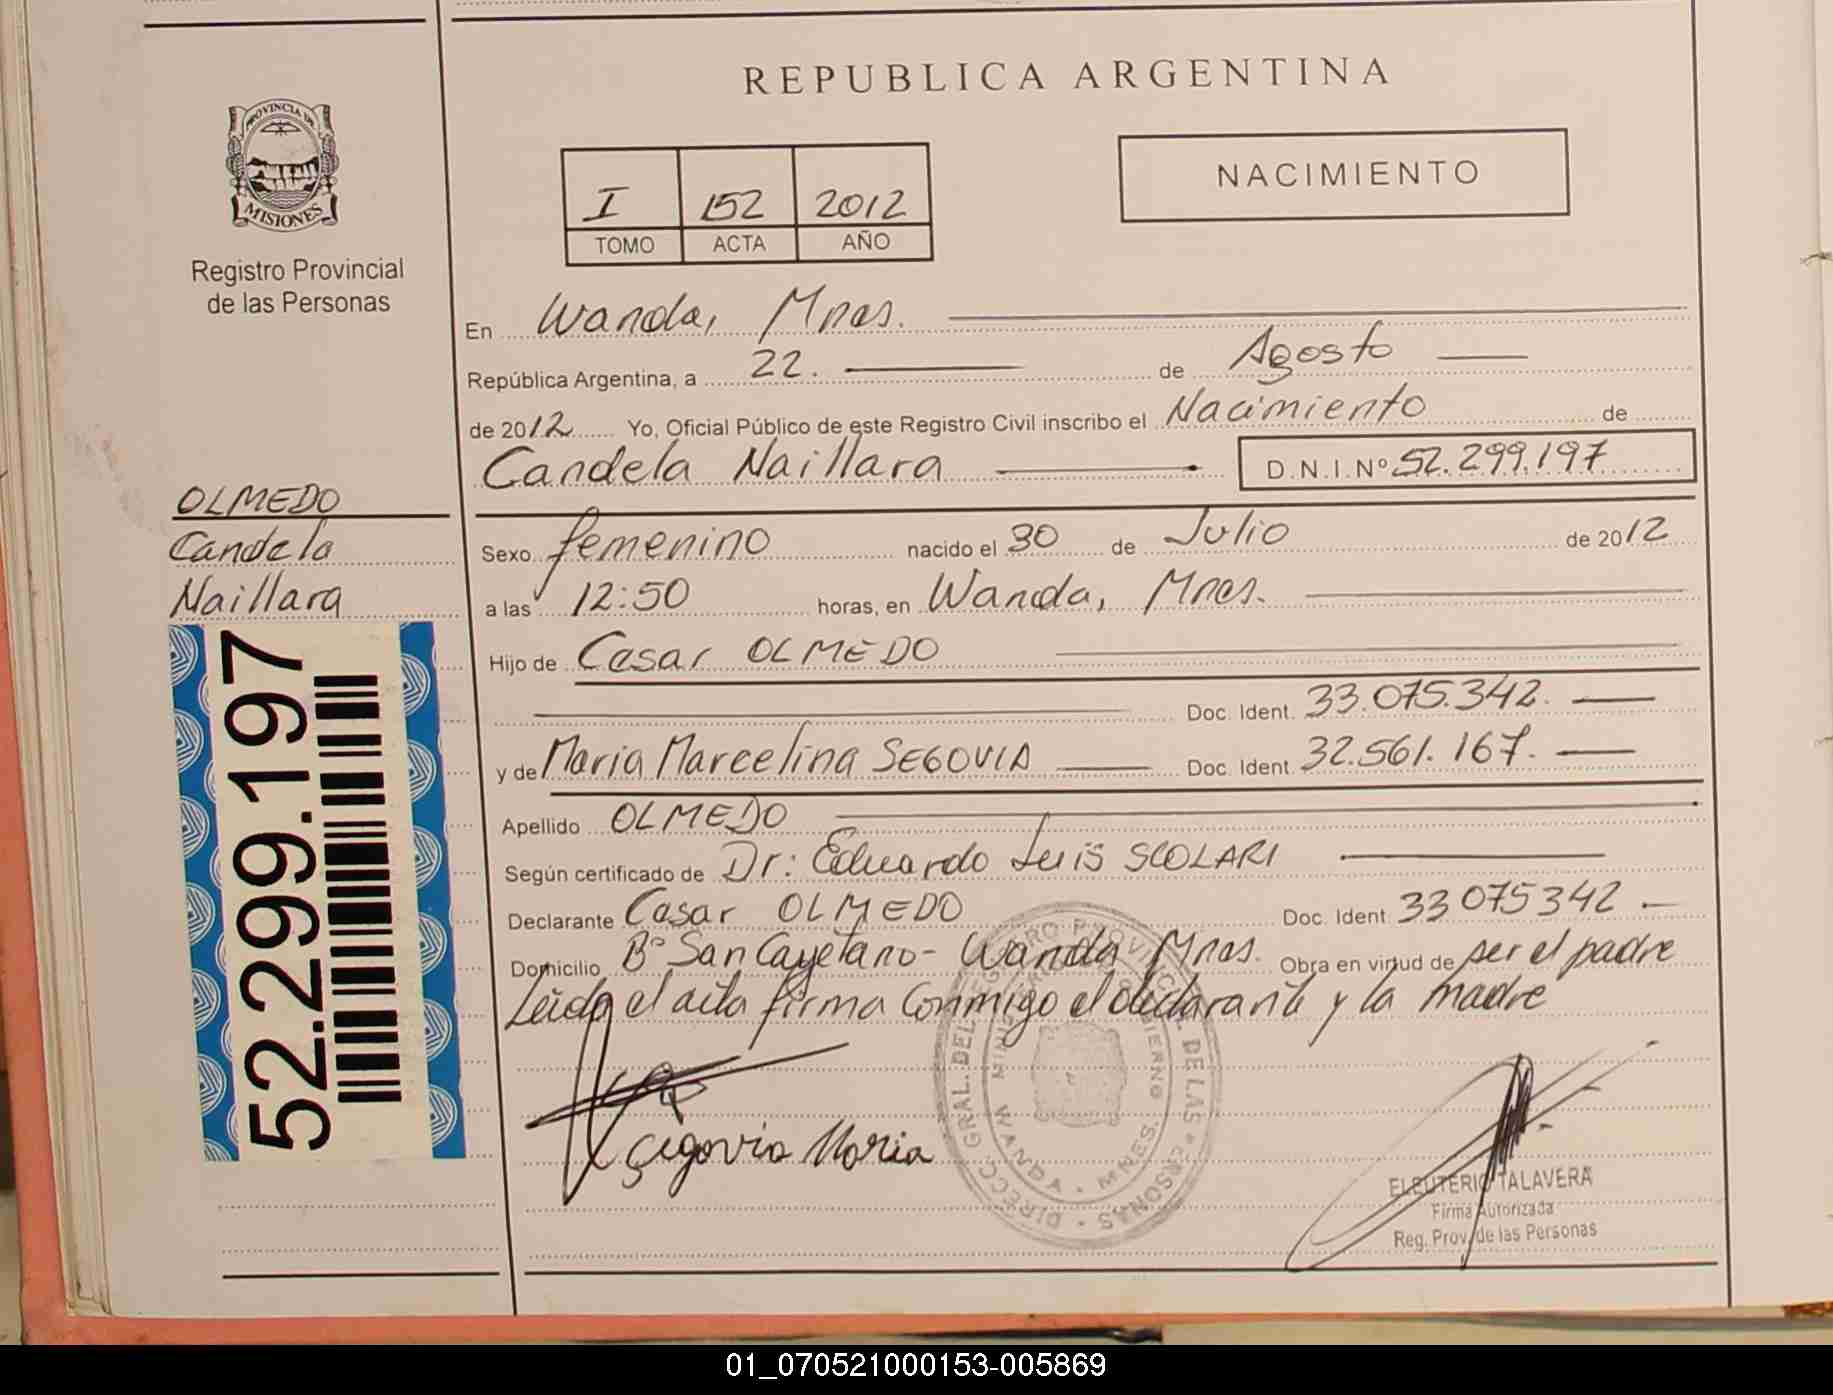 REPUBLICA ARGENTINA
PROVINCIA DE
MISIONES
Registro Provincial
de las Personas
NACIMIENTO
I 152 2012
TOMO ACTA AÑO
En Wanda, Mnes.
República Argentina, a 22. de Agosto
de 2012 Yo, Oficial Público de este Registro Civil inscribo el Nacimiento de
Candela Naillara D.N.I.Nº 52.299.197
OLMEDO
Candela
Naillara
52.299.197
Sexo femenino nacido el 30 de Julio de 2012
a las 12:50 horas, en Wanda, Mnes.
Hijo de Cesar OLMEDO
Doc. Ident. 33.075.342.
y de Maria Marcelina SEGOVIA Doc. Ident. 32.561.167.
Apellido OLMEDO
Según certificado de Dr: Eduardo Luis SCOLARI
Declarante Cesar OLMEDO Doc. Ident. 33075342
Domicilio Bº San Cayetano - Wanda Mnes. Obra en virtud de ser el padre
Leido el acta firma conmigo el declarante y la madre
Segovia Maria
DIRECC. GRAL. DEL REGISTRO PROVINCIAL DE LAS PERSONAS
WANDA - MNES.
ELEUTERIO TALAVERA
Firma Autorizada
Reg. Prov. de las Personas
01_070521000153-005869